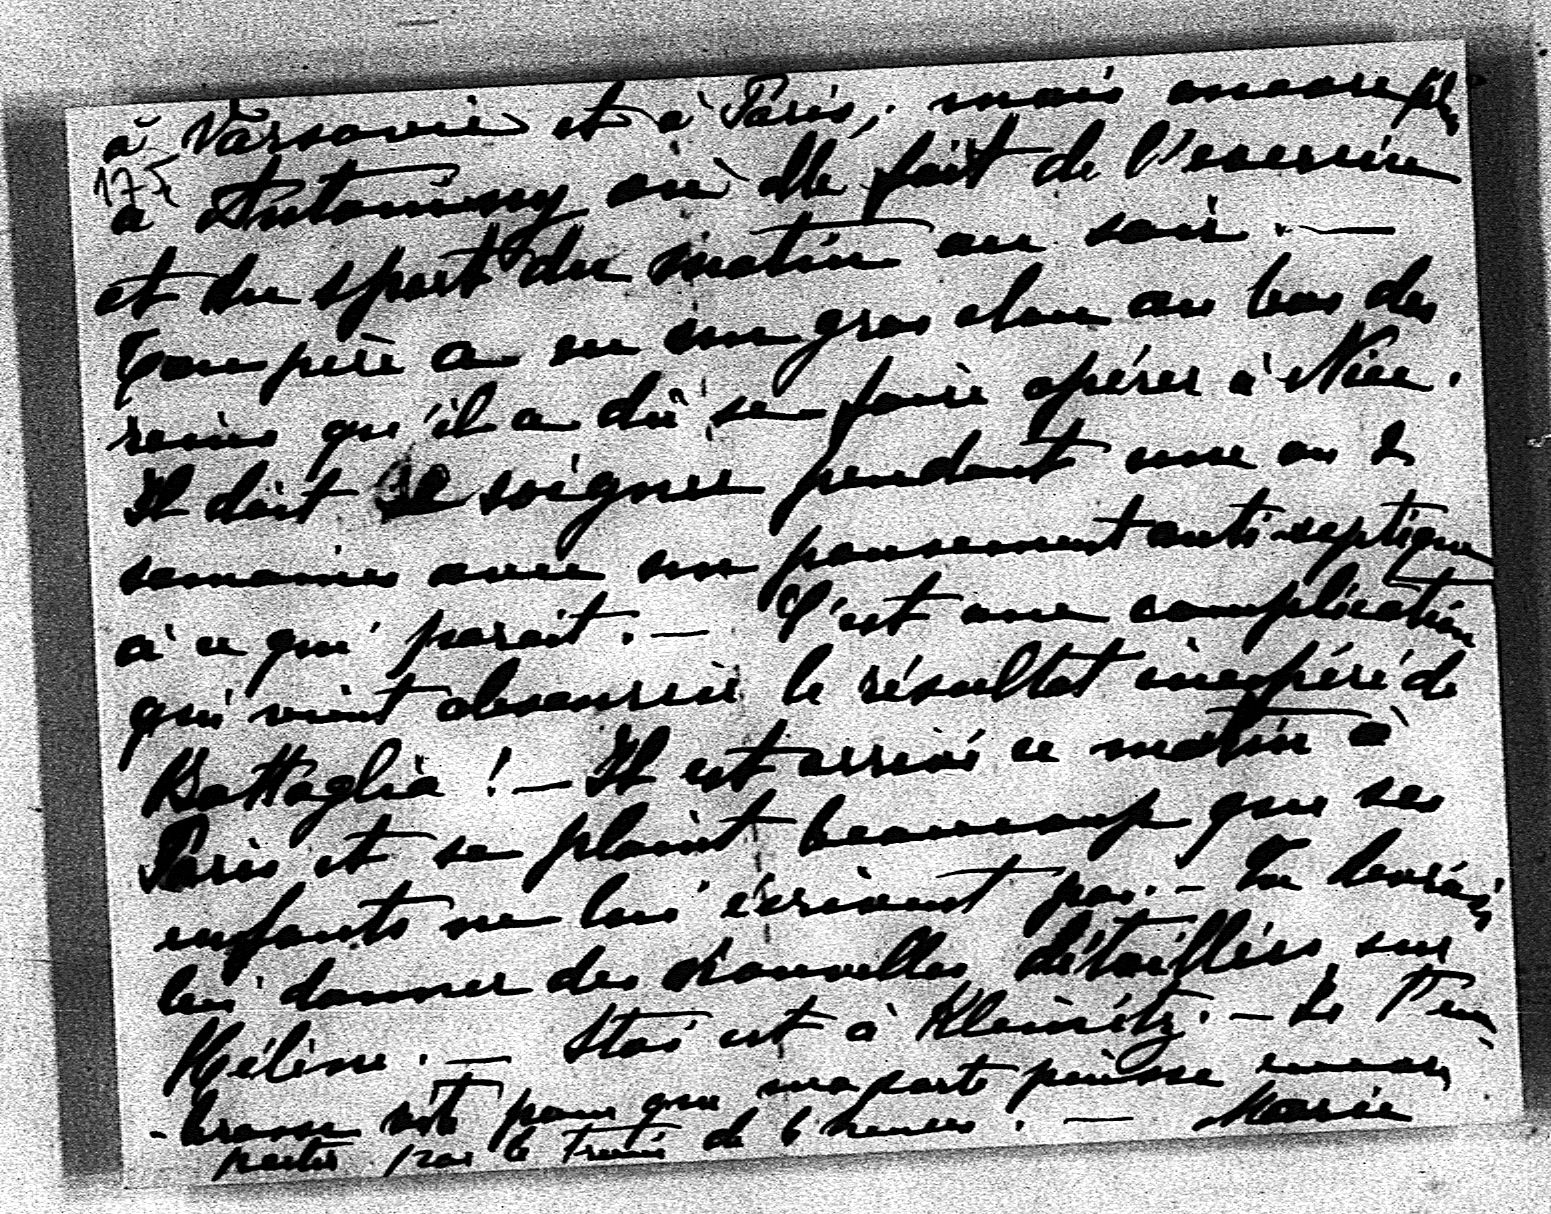 à Varsovie et à Paris, mais encore plus
175
à Antoniny où elle fait de l'exercice
et du sport du matin au soir. —
Ton père a eu un gros clou au bas des
reins qu'il a dû se faire opérer à Nice.
Il doit se soigner pendant une ou 2
semaines avec un pansement antiseptique
à ce qui parait. — C'est une complication
qui vient obscurcir le résultat inespéré de
Battaglia ! — Il est arrivé ce matin à
Paris et se plaint beaucoup que ses
enfants ne lui écrivent pas. — Tu devrais
lui donner des nouvelles détaillées sur
Hélène. — Stas est à Kleinitz. — Je t'em
-brasse vite pour que ma carte puisse encore
partir par le train de 6 heures. — Marie